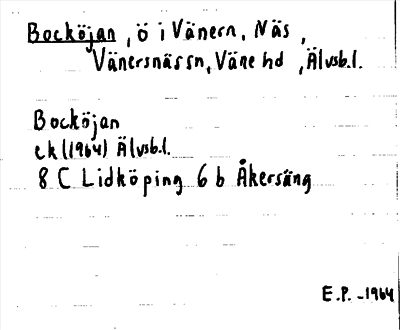 Bocköjan, ö i Vänern, Näs,
Vänersnäs sn, Väne hd, Älvsb.l.
Bocköjan
ek (1964) Älvsb.l.
8 C Lidköping 6 b Åkersäng
E.P. -1964